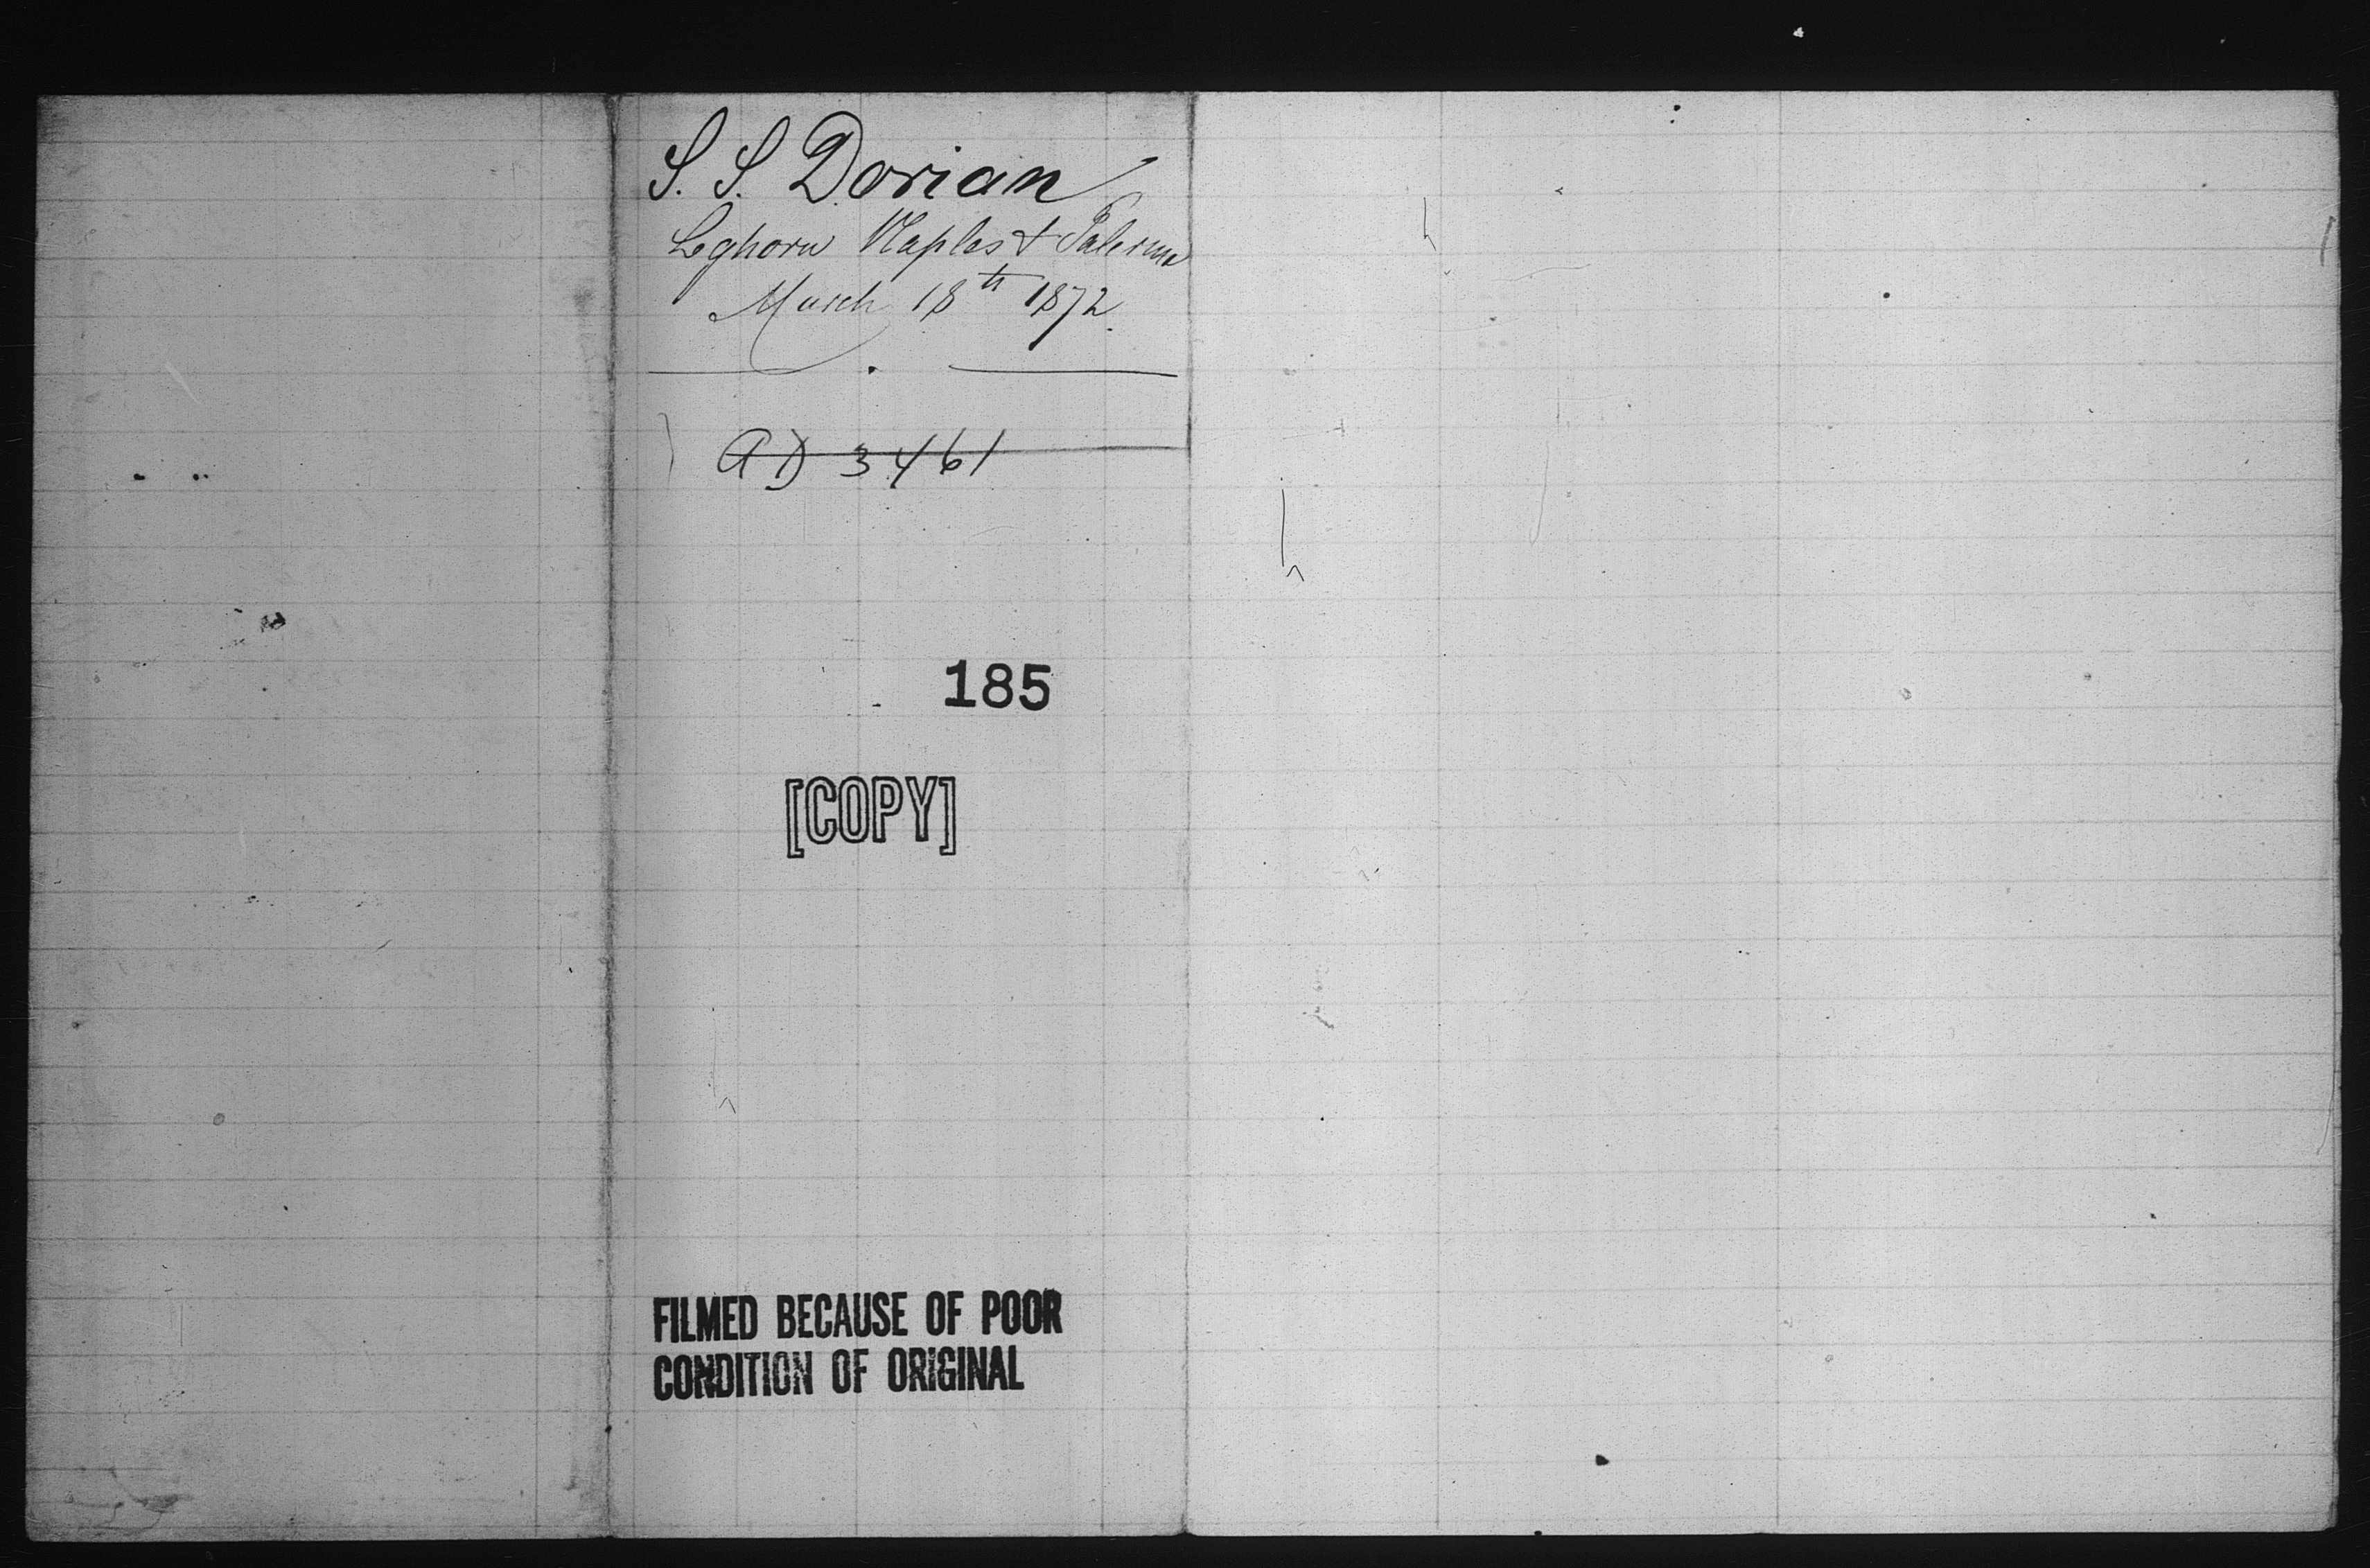 S. S. Dorian
Leghorn Naples & Palermo
March 18th 1872
AD 3461
185
[COPY]
FILMED BECAUSE OF POOR
CONDITION OF ORIGINAL